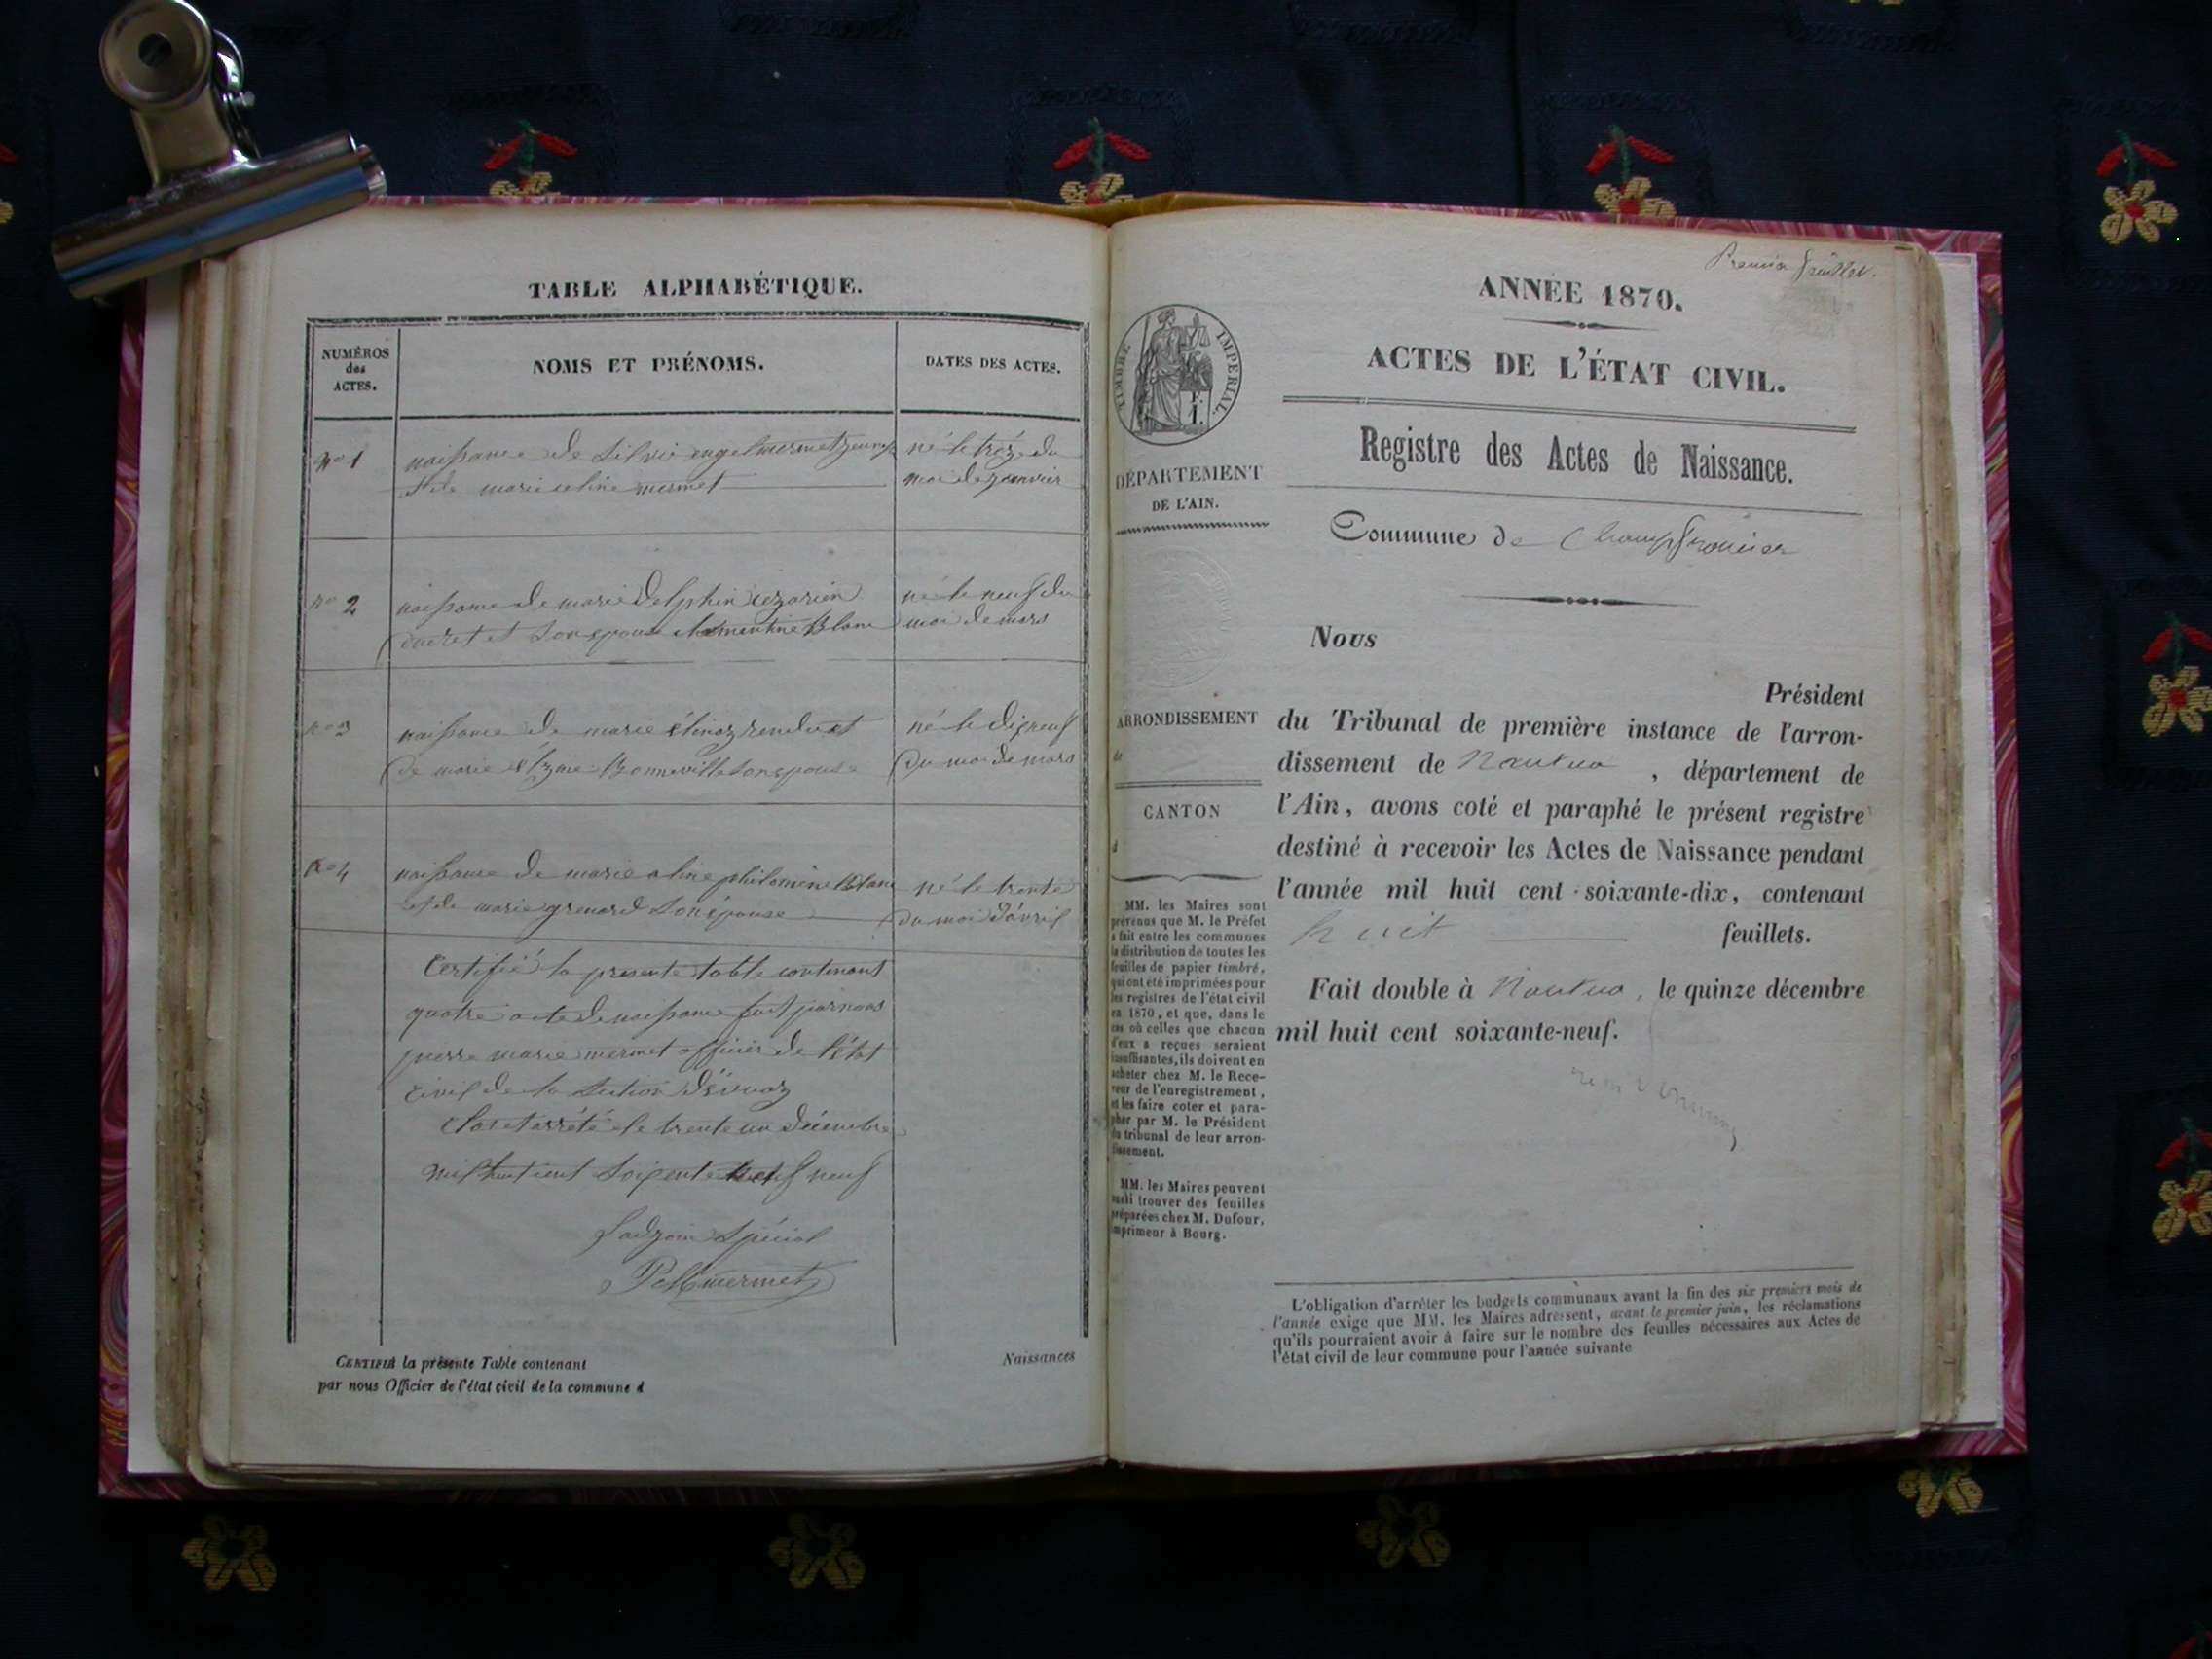 TABLE ALPHABÉTIQUE.
NUMÉROS
des
ACTES.
NOMS ET PRÉNOMS.
DATES DES ACTES.
n° 1
naissance de Silvie angel mermet
et de marie celine mermet
né le trèze du
moi de janvier
n° 2
naissance de marie Delphin cezarien
ducret et son epouse clementine Blanc
né le neuf du
moi de mars
n° 3
naissance de marie
de marie Bonneville son epouse
né le dix neuf
du moi de mars
n° 4
naissance de marie celine philomene Blanc
et de marie grenard son épouse
né le trente
du moi d'avril
Certifié la presente table contenant
quatre acte de naissance fait par nous
pierre marie mermet officier de l'état
civil de la section d'évuaz
Clos et arrété le trente un décembre
mil huit cent soixante neuf
l'adjoint spécial
P M mermet
CERTIFIÉ la présente Table contenant
par nous Officier de l'état civil de la commune d
Naissances
Premier feuillet.
ANNÉE 1870.
ACTES DE L'ÉTAT CIVIL.
TIMBRE IMPERIAL.
Registre des Actes de Naissance.
DÉPARTEMENT
DE L'AIN.
Commune de Champfromier
Nous
Président
ARRONDISSEMENT
de
du Tribunal de première instance de l'arron-
dissement de Nantua , département de
CANTON
d
l'Ain, avons coté et paraphé le présent registre
destiné à recevoir les Actes de Naissance pendant
l'année mil huit cent soixante-dix, contenant
huit feuillets.
Fait double à Nantua, le quinze décembre
mil huit cent soixante-neuf.
MM. les Maires sont
prévenus que M. le Préfet
a fait entre les communes
la distribution de toutes les
feuilles de papier timbré,
qui ont été imprimées pour
les registres de l'état civil
en 1870, et que, dans le
cas où celles que chacun
d'eux a reçues seraient
insuffisantes, ils doivent en
acheter chez M. le Rece-
veur de l'enregistrement,
et les faire coter et para-
pher par M. le Président
du tribunal de leur arron-
dissement.
MM. les Maires peuvent
aussi trouver des feuilles
préparées chez M. Dufour,
imprimeur à Bourg.
L'obligation d'arrêter les budgets communaux avant la fin des six premiers mois de
l'année exige que MM. les Maires adressent, avant le premier juin, les réclamations
qu'ils pourraient avoir à faire sur le nombre des feuilles nécessaires aux Actes de
l'état civil de leur commune pour l'année suivante